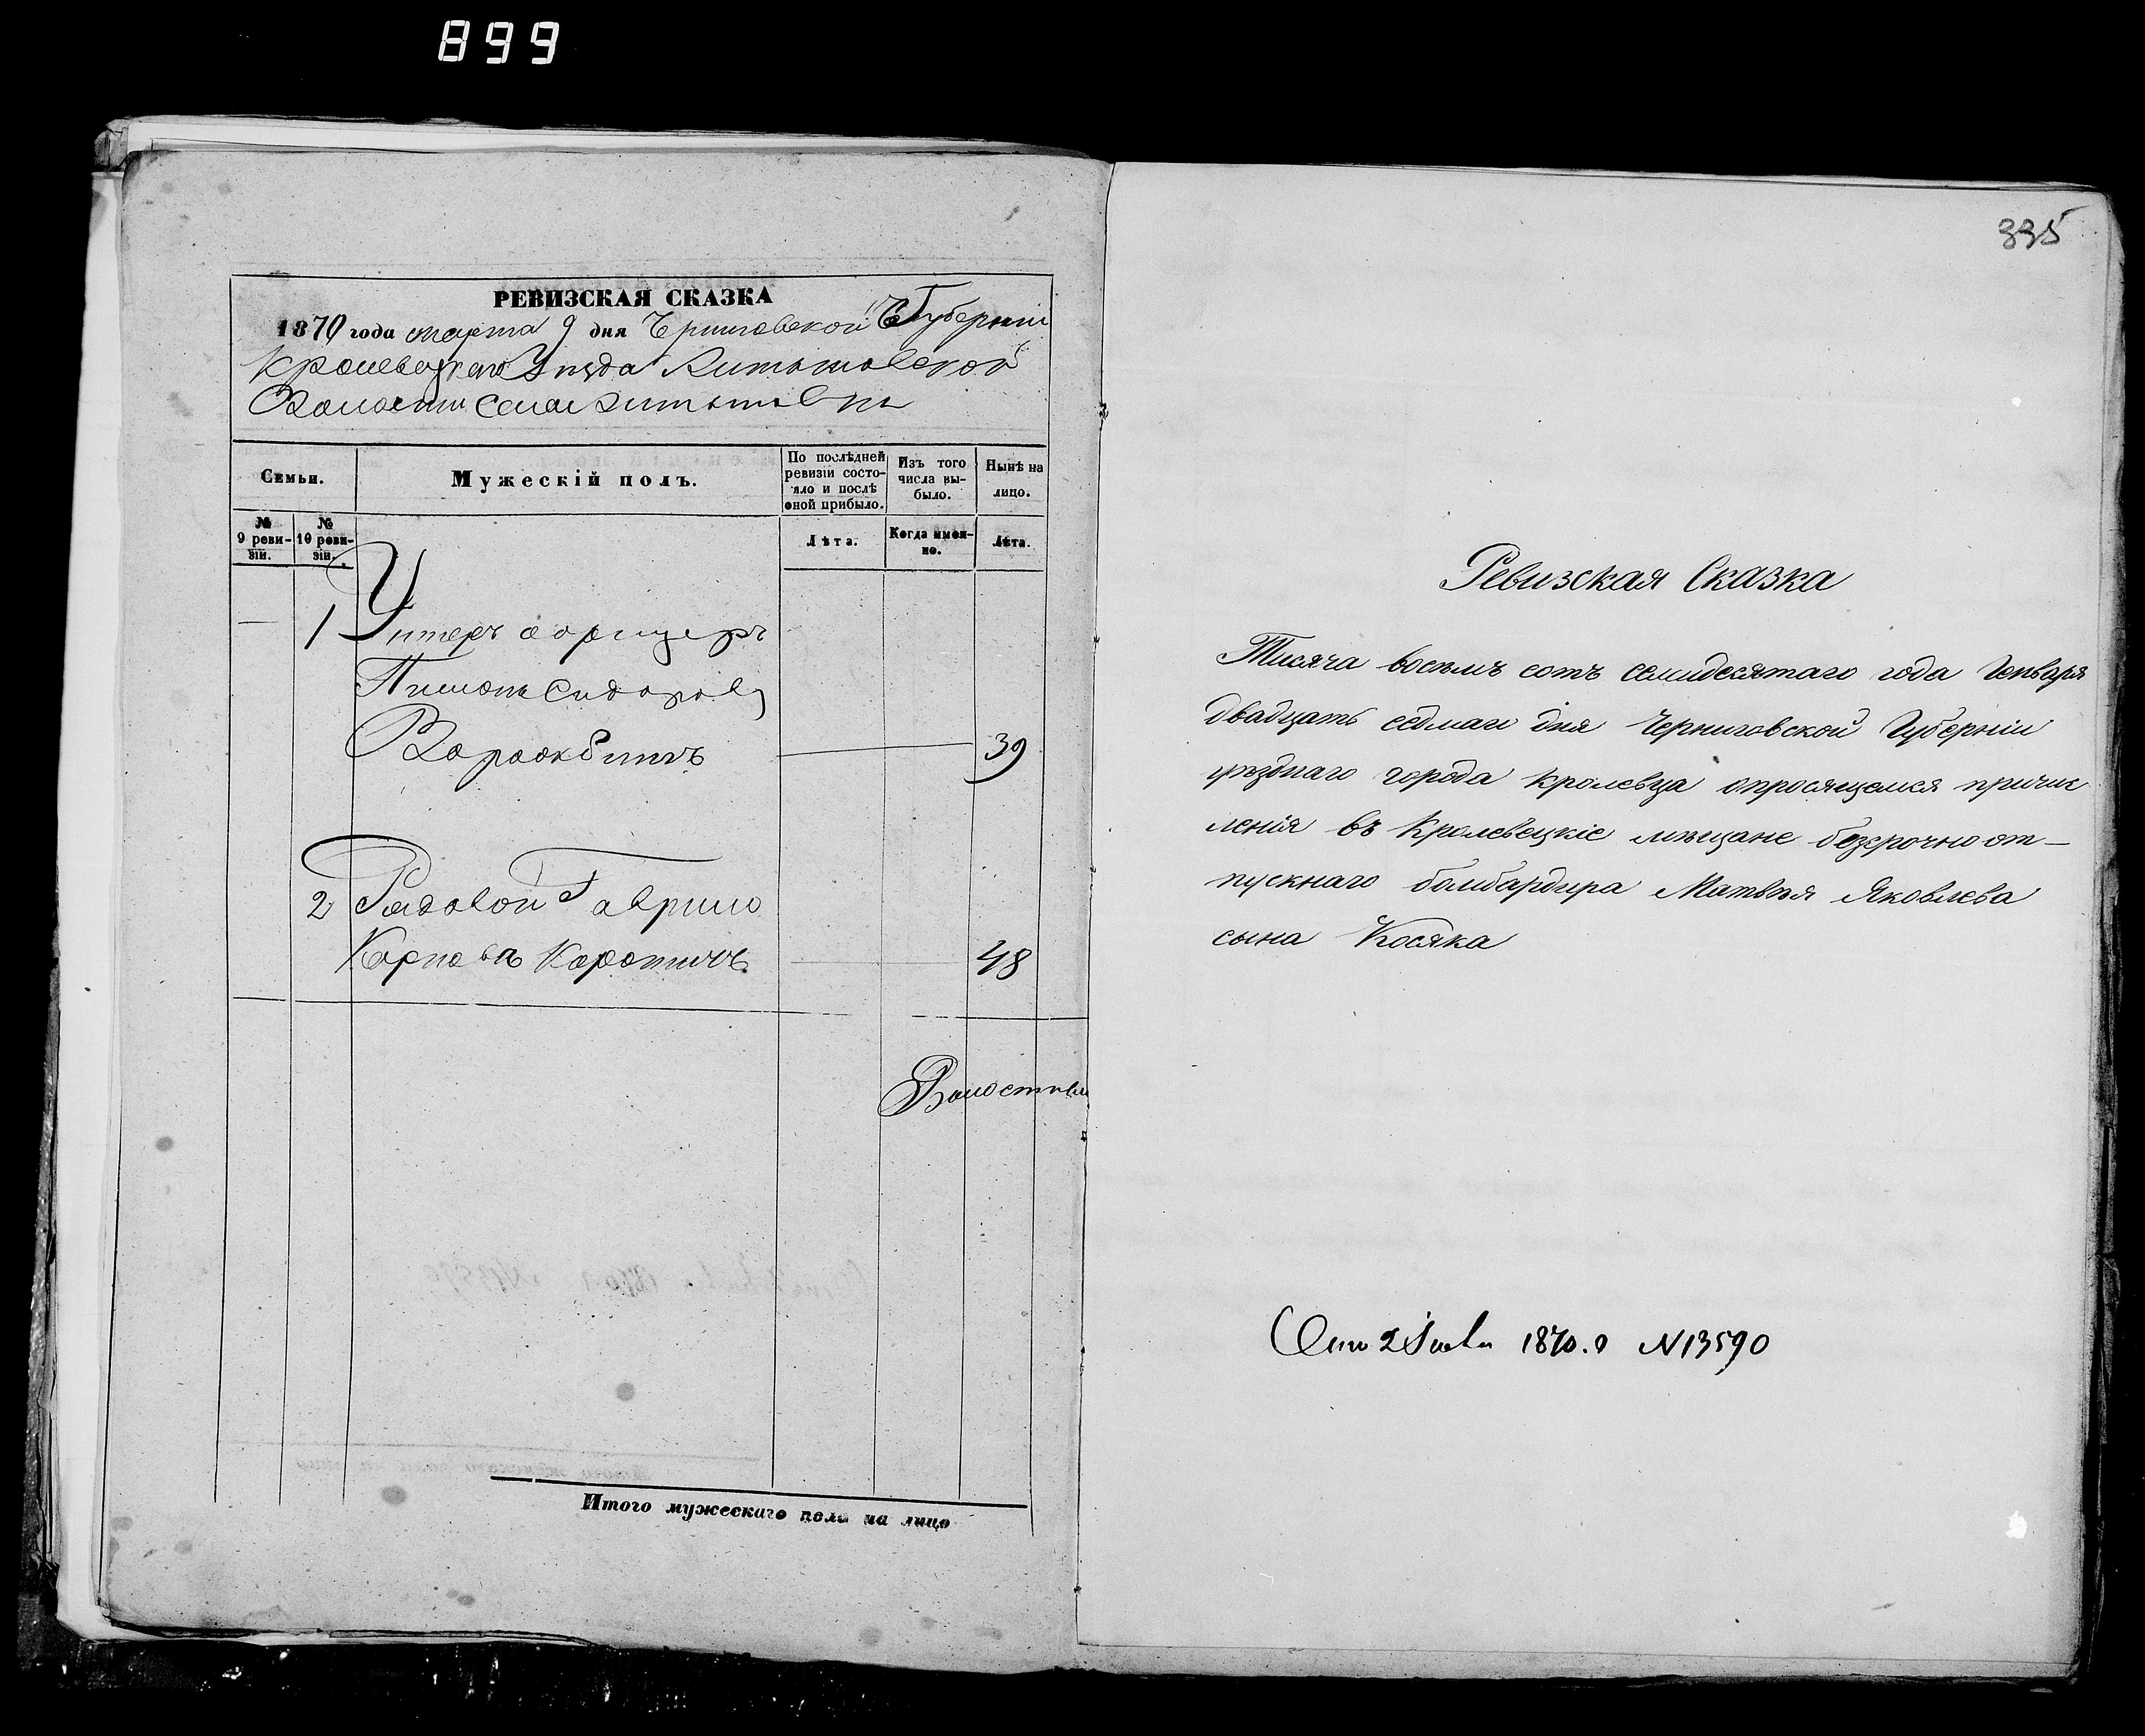 899
РЕВИЗСКАЯ СКАЗКА
1870 года марта 9 дня Черниговской Губерніи
Кролевецкаго Уѣзда
Волости Села
Семьи.
Мужескій полъ.
По послѣдней ревизіи состояло и послѣ оной прибыло.
Изъ того числа выбыло.
Нынѣ на лицо.
№ 9 ревизіи.
№ 10 ревизіи.
Лѣта.
Когда именно.
Лѣта.
1 Унтеръ офицеръ
Сидоровъ
39
2 Рядовой Гаврило
Карповъ Коротичъ
48
Волостный
Итого мужескаго пола на лицо
335
Ревизская Сказка
Тисяча восемъ сотъ семидесятаго года Генваря
двадцать седмаго дня Черниговской Губерніи
уѣзднаго города Кролевца опросящемся причис
ленія въ Кролевецкіе мѣщане безсрочноот-
пускнаго бомбардира Матвѣя Яковлева
сына Косяка
2 1870. N13590